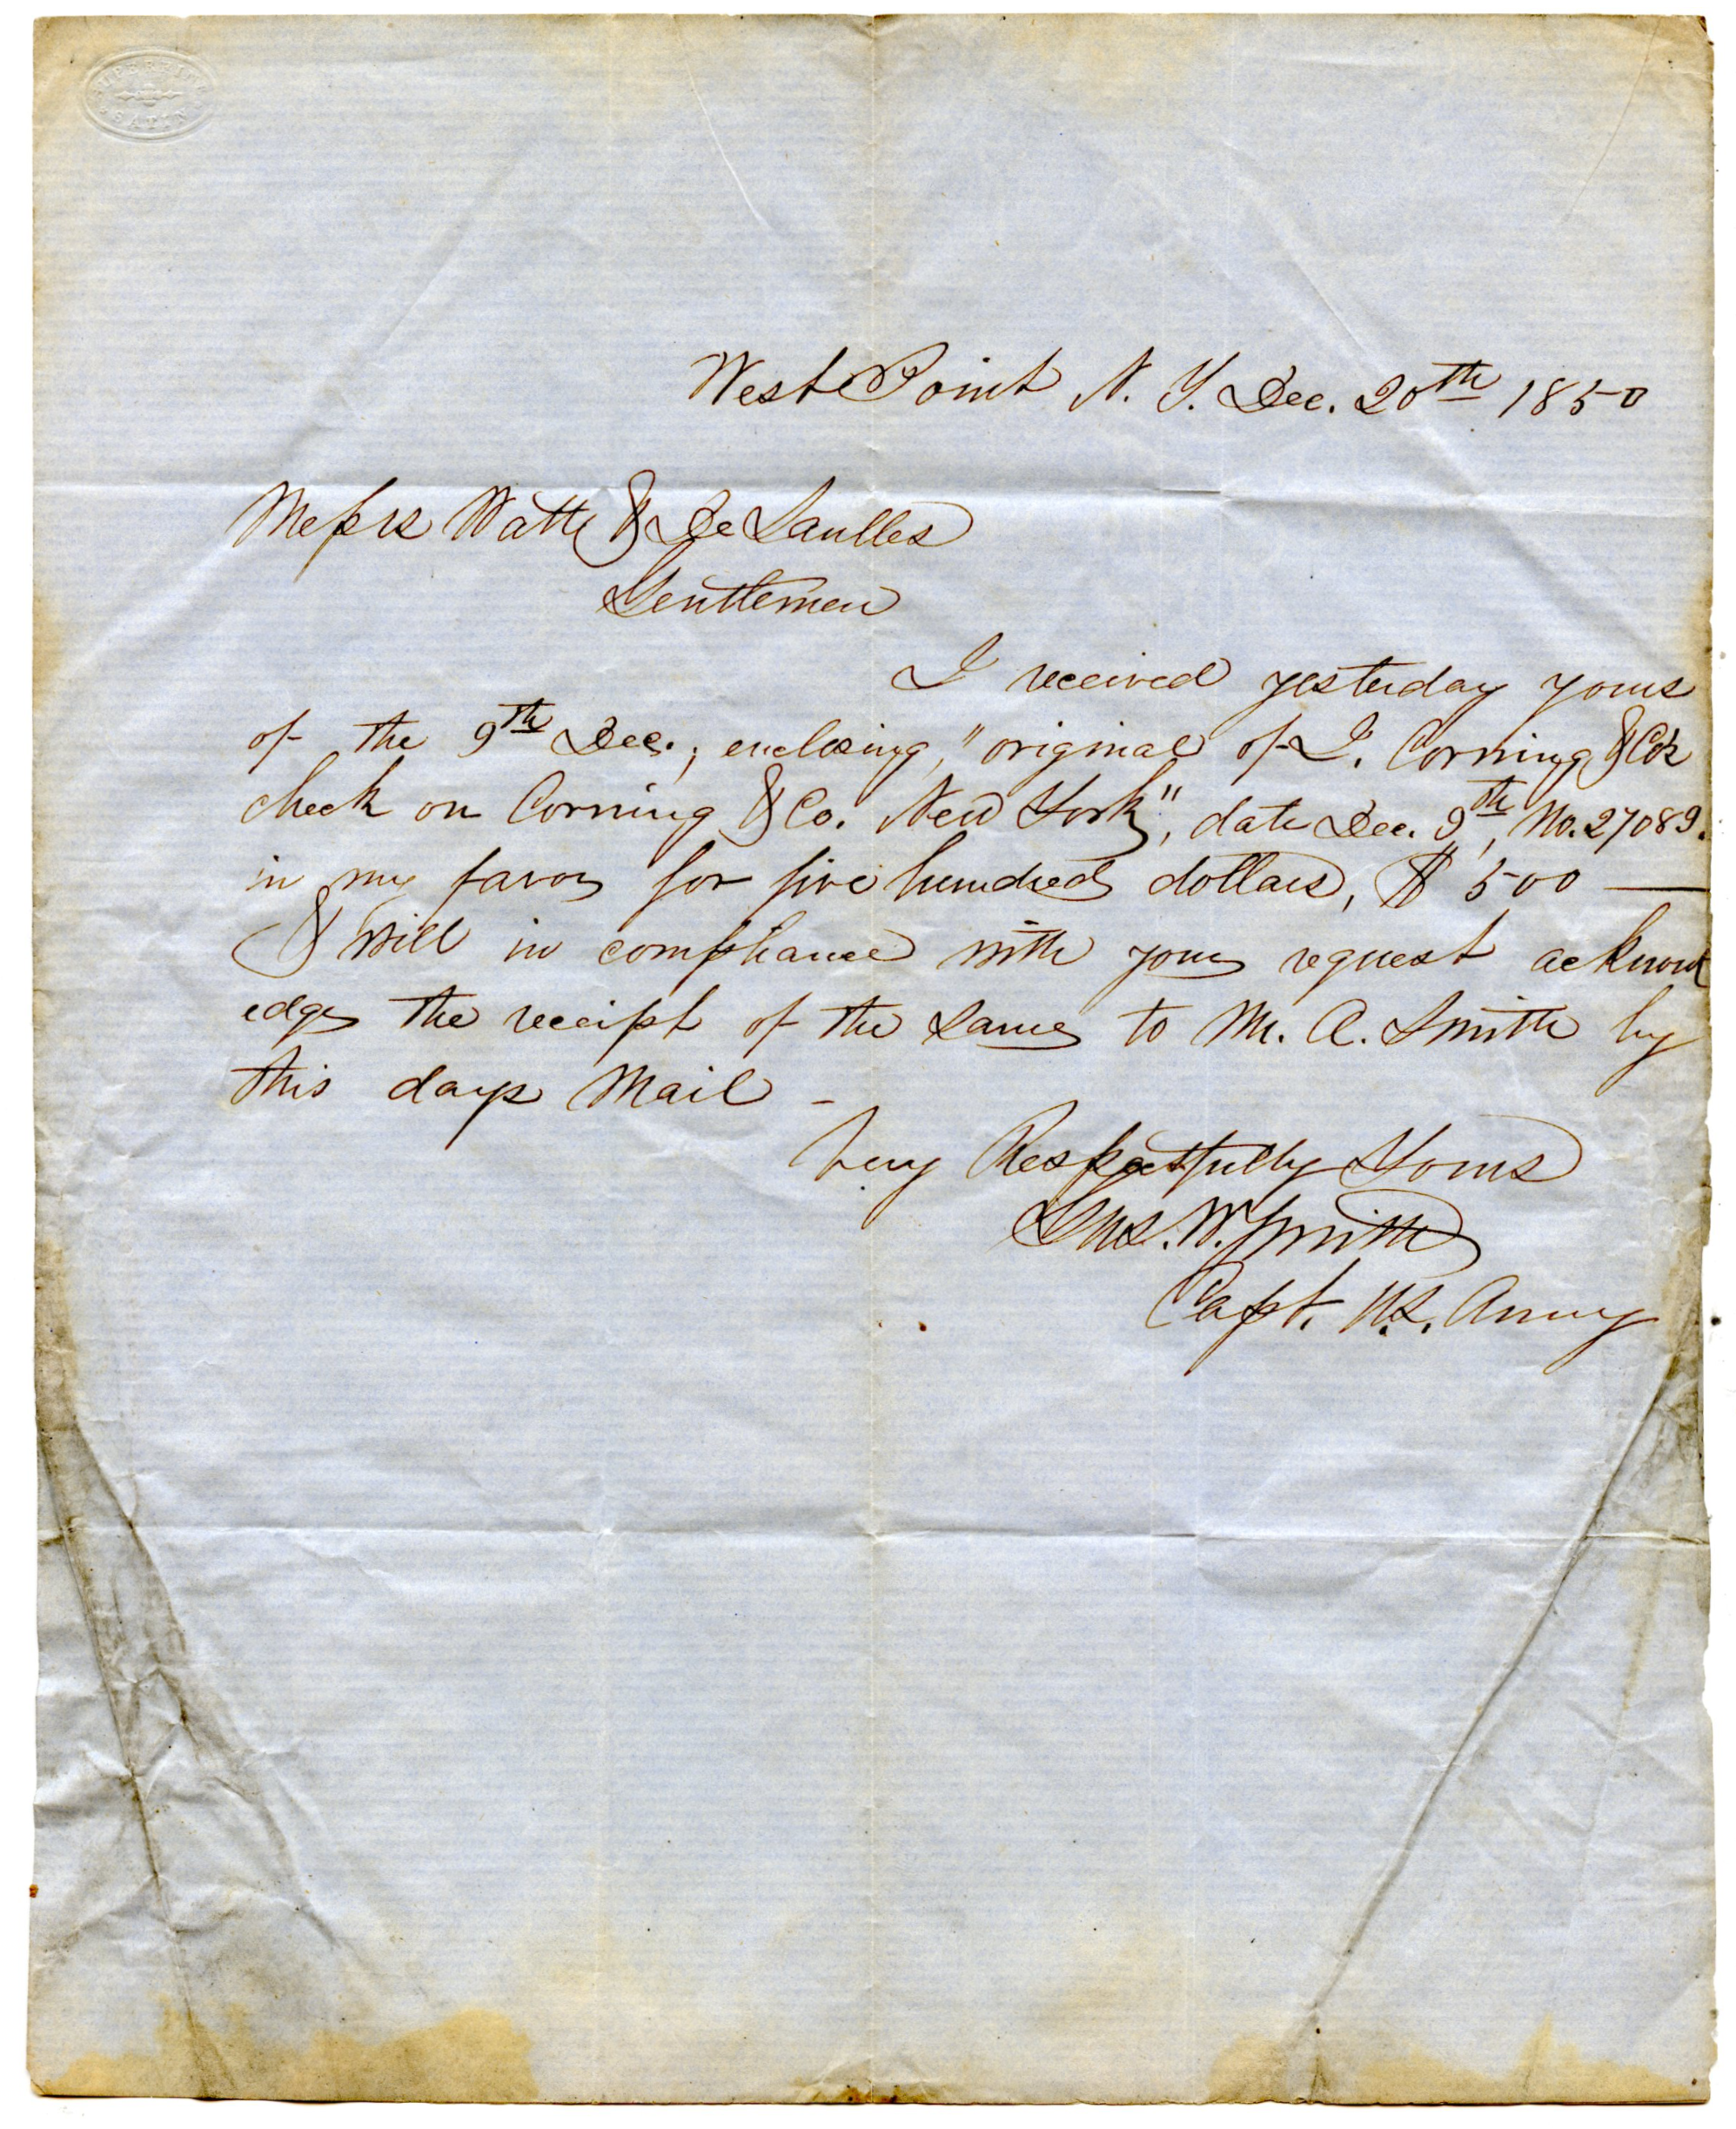 West Point N. Y. Dec. 20th 1850
Messrs Watts & De Saulles
Gentlemen
I received yesterday yours
of the 9th Dec., enclosing, "original of J. Corning & Co's
check on Corning & Co. New York", date Dec. 9th, No. 27089.
in my favor for five hundred dollars, $ 500 —
& will in compliance with your request acknowl
edge the receipt of the same to M. A. Smith by
this days Mail -
Very Respectfully Yours
Gus. W. Smith
Capt. U.S. Army